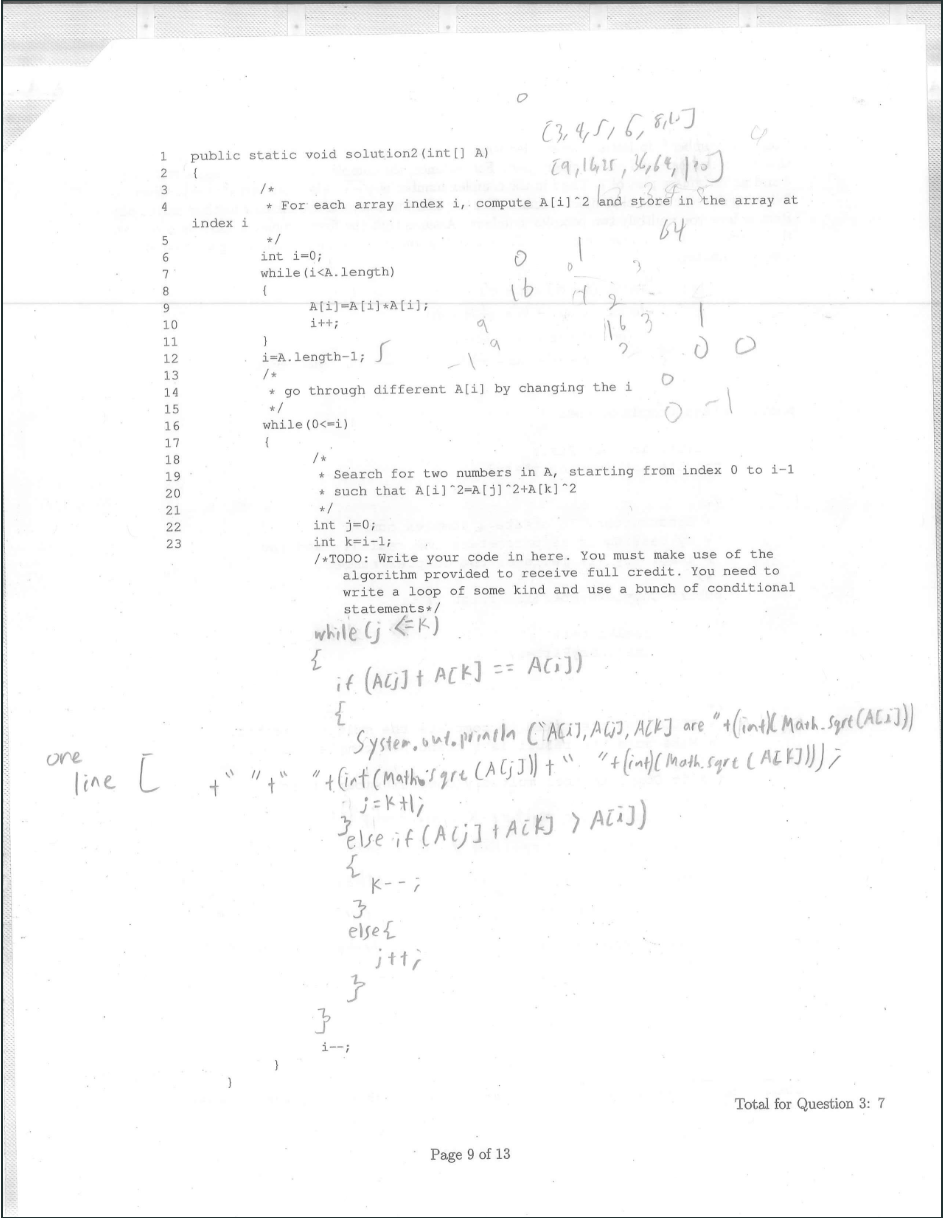 0
[3, 4, 5, 6, 8, 10]
[9, 16, 25, 36, 64, 100]
1 public static void solution2(int[] A)
2 {
3 /*
4 * For each array index i, compute A[i]^2 and store in the array at
index i
64
5 */
6 int i=0;
7 while(i<A.length)
8 {
9 A[i]=A[i]*A[i];
10 i++;
11 }
12 i=A.length-1; 5
13 /*
14 * go through different A[i] by changing the i
15 */
0 -1
16 while(0<=i)
17 {
18 /*
19 * Search for two numbers in A, starting from index 0 to i-1
20 * such that A[i]^2=A[j]^2+A[k]^2
21 */
22 int j=0;
23 int k=i-1;
/*TODO: Write your code in here. You must make use of the
algorithm provided to receive full credit. You need to
write a loop of some kind and use a bunch of conditional
statements*/
while (j <=K)
{
if (A[j] + A[K] == A[i])
{
System.out.println ("A[i], A[j], A[K] are "+(int)(Math.sqrt(A[i]))
one
line [ +" "+" "+(int(Math.sqrt(A[j])) + " "+(int)(Math.sqrt(A[K])));
j=K+1;
}
else if (A[j] + A[K] > A[i])
{
K--;
}
else{
j++;
}
}
i--;
}
}
Total for Question 3: 7
Page 9 of 13